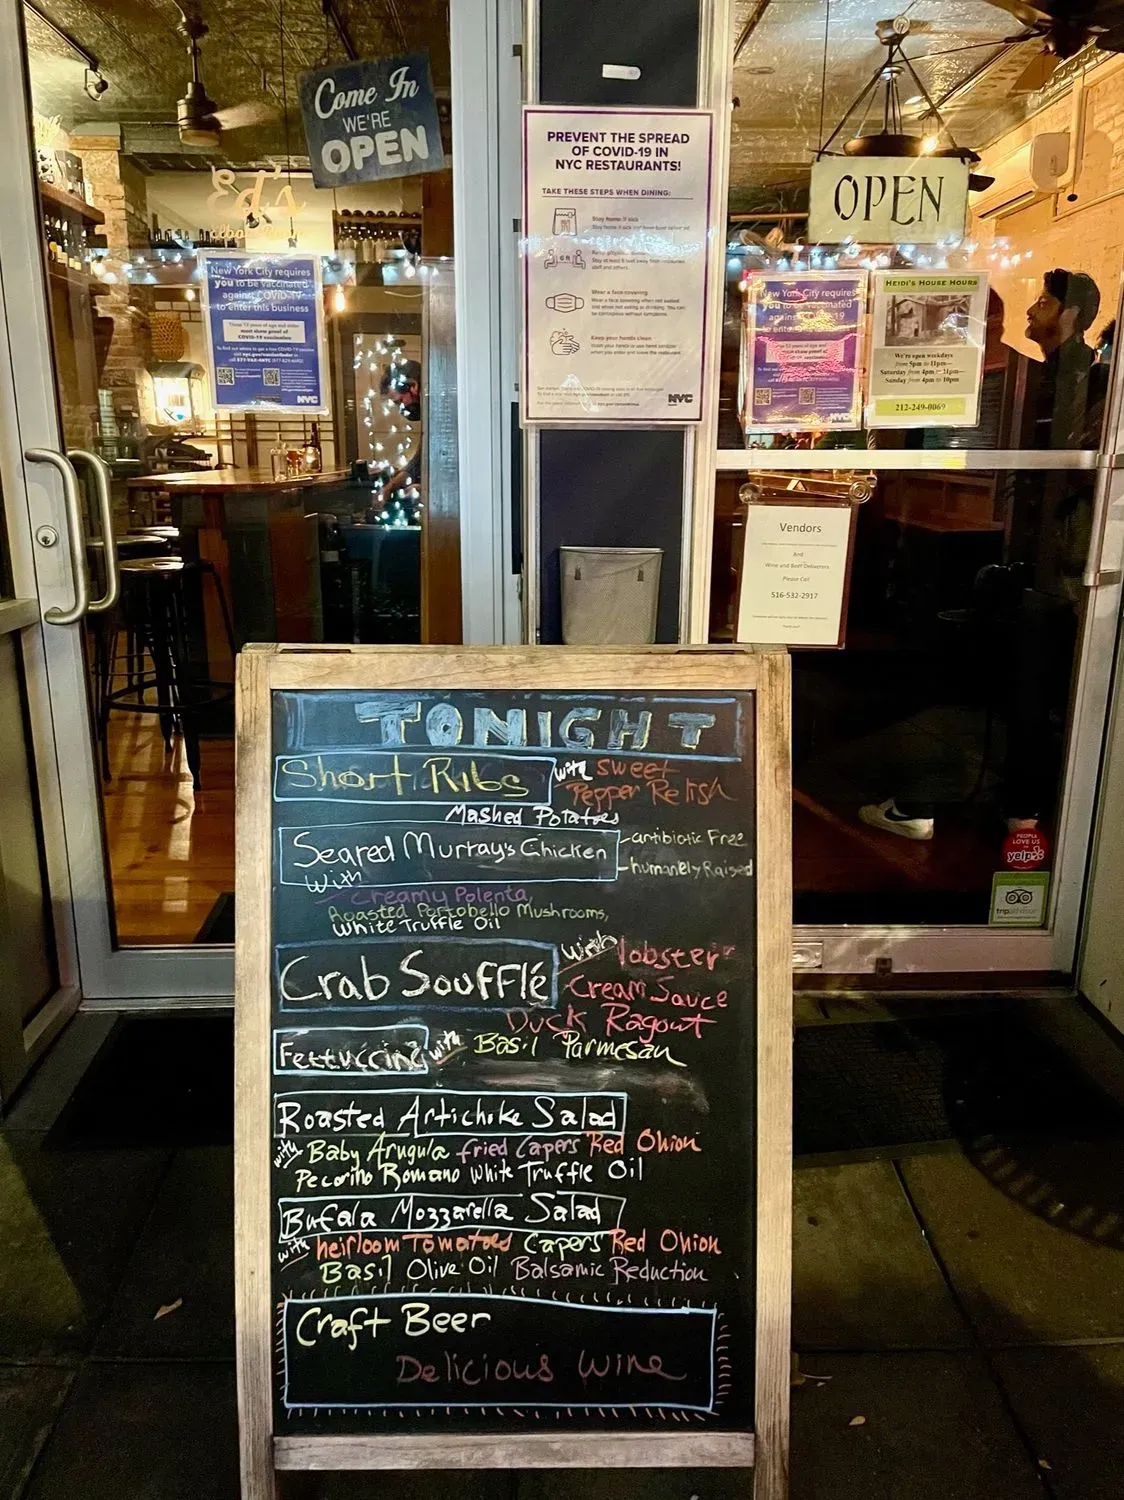 Come In
WE'RE
OPEN
Ed's
New York City requires
you to be vaccinated
against COVID-19
to enter this business
Those 12 years of age and older
must show proof of
COVID-19 vaccination
NYC
PREVENT THE SPREAD
OF COVID-19 IN
NYC RESTAURANTS!
TAKE THESE STEPS WHEN DINING:
Stay home if sick
6 ft
Wear a face covering
Keep your hands clean
NYC
OPEN
New York City requires
you to be vaccinated
against COVID-19
NYC
HEIDI'S HOUSE HOURS
We're open weekdays
from 5pm to 11pm—
Saturday from 4pm – 11pm—
Sunday from 4pm to 10pm
212-249-0069
Vendors
And
Wine and Beef Deliverers
Please Call
516-532-2917
PEOPLE
LOVE US
yelp
tripadvisor
TONIGHT
Short Ribs with sweet
Pepper Relish
Mashed Potatoes
Seared Murray's Chicken - antibiotic Free
- humanely Raised
with
Creamy Polenta,
Roasted Portobello Mushrooms,
White Truffle Oil
Crab Soufflé with lobster
Cream Sauce
Duck Ragout
Fettuccine with Basil Parmesan
Roasted Artichoke Salad
with Baby Arugula fried Capers Red Onion
Pecorino Romano White Truffle Oil
Bufala Mozzarella Salad
with heirloom Tomatoes Capers Red Onion
Basil Olive Oil Balsamic Reduction
Craft Beer
Delicious Wine